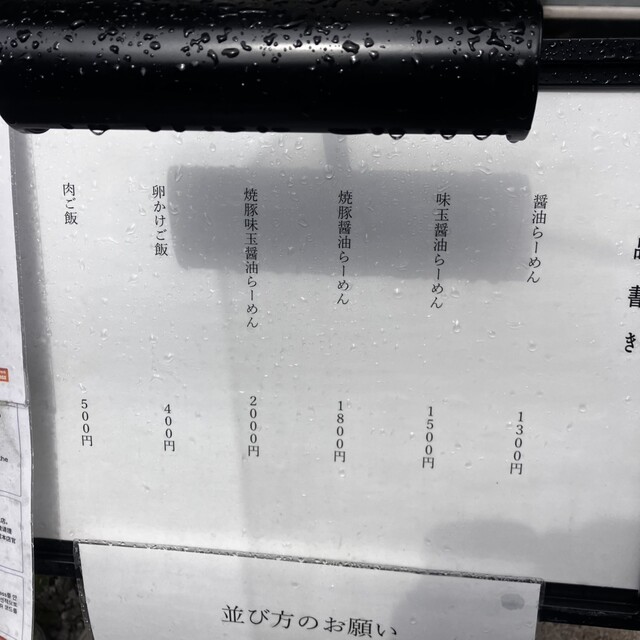 品書き
醤油らーめん 1300円
味玉醤油らーめん 1500円
焼豚醤油らーめん 1800円
焼豚味玉醤油らーめん 2000円
卵かけご飯 400円
肉ご飯 500円
並び方のお願い